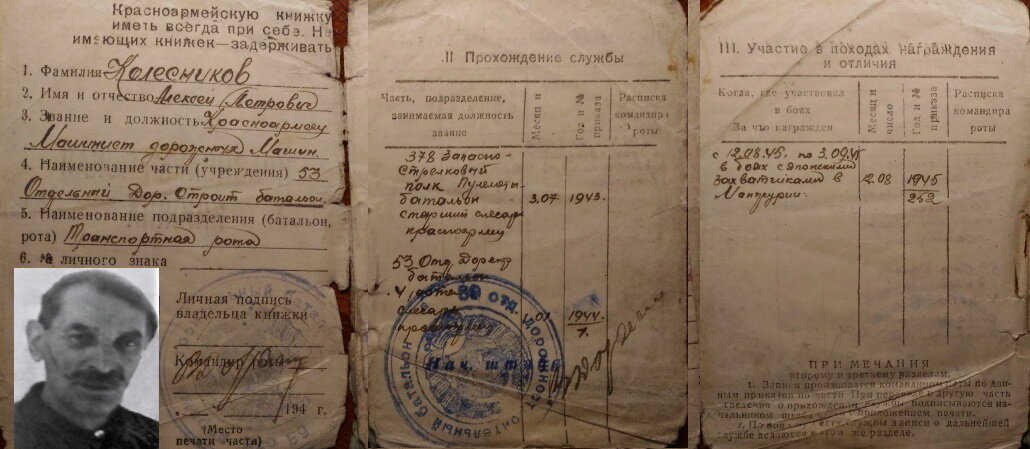 Красноармейскую книжку
иметь всегда при себе. Не
имеющих книжек—задерживать
1. Фамилия Колесников
2. Имя и отчество Алексей Петрович
3. Звание и должность Красноармеец
Машинист дорожных Машин
4. Наименование части (учреждения) 53
Отдельный Дор. Строит батальон
5. Наименование подразделения (батальон,
рота) Транспортная рота
6. № личного знака
Личная подпись
владельца книжки
Командир роты
194 г.
(Место
печати части)
II Прохождение службы
Часть, подразделение,
занимаемая должность
звание
Месяц и
Год и №
приказа
Расписка
командира
роты
378 Запасно-
стрелковый
полк Пулеметн.
батальон 3.07 1943.
старший слесарь
красноармеец
53 Отд Дорстр
батальон
слесарь 1944
7.
Нач. штаба
III. Участие в походах, награждения
и отличия
Когда, где участвовал
в боях
За что награжден
Месяц и
число
Год и №
приказа
Расписка
командира
роты
с 12.08.45. по 3.09.45
в боях с японскими
захватчиками в 12.08 1945
Манчурии. 252
ПРИМЕЧАНИЯ
второму и третьему разделам.
1. Записи производятся командиром роты по дан-
ным приказов по части. При переходе в другую часть
сведения о прохождении службы подписываются на-
чальником штаба части с приложением печати.
2. По службы записи о дальнейшей
службе делаются в этом же разделе.